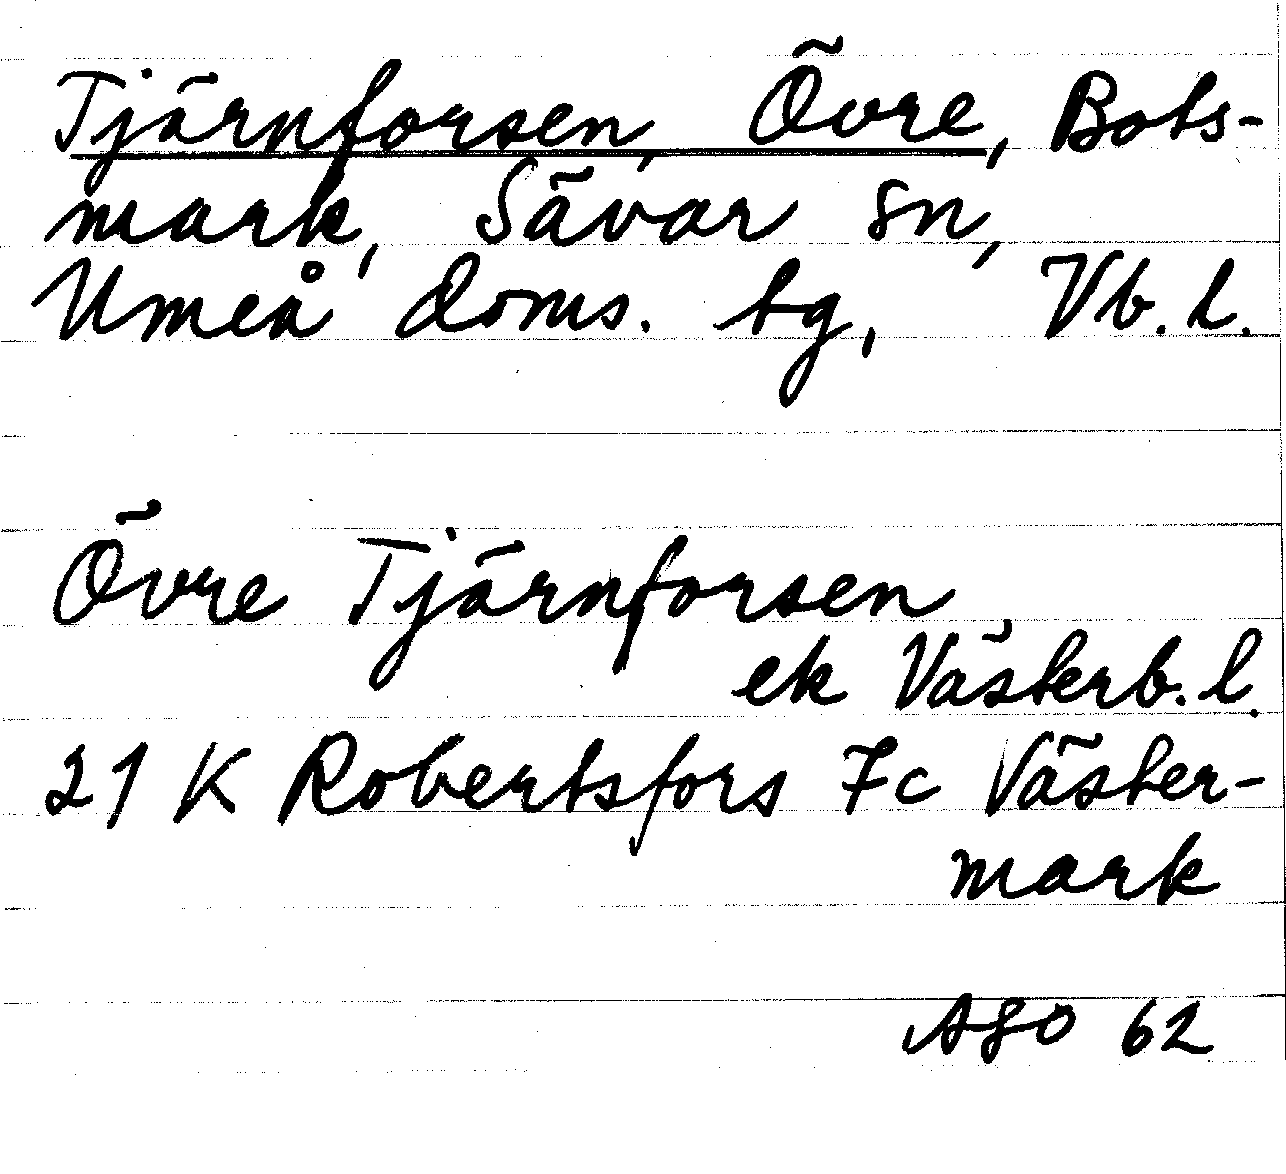 Tjärnforsen, Övre, Bots-
mark, Sävar sn,
Umeå doms. tg, Vb. l.
Övre Tjärnforsen
ek Västerb. l.
21 K Robertsfors 7c Väster-
mark
ASO 62